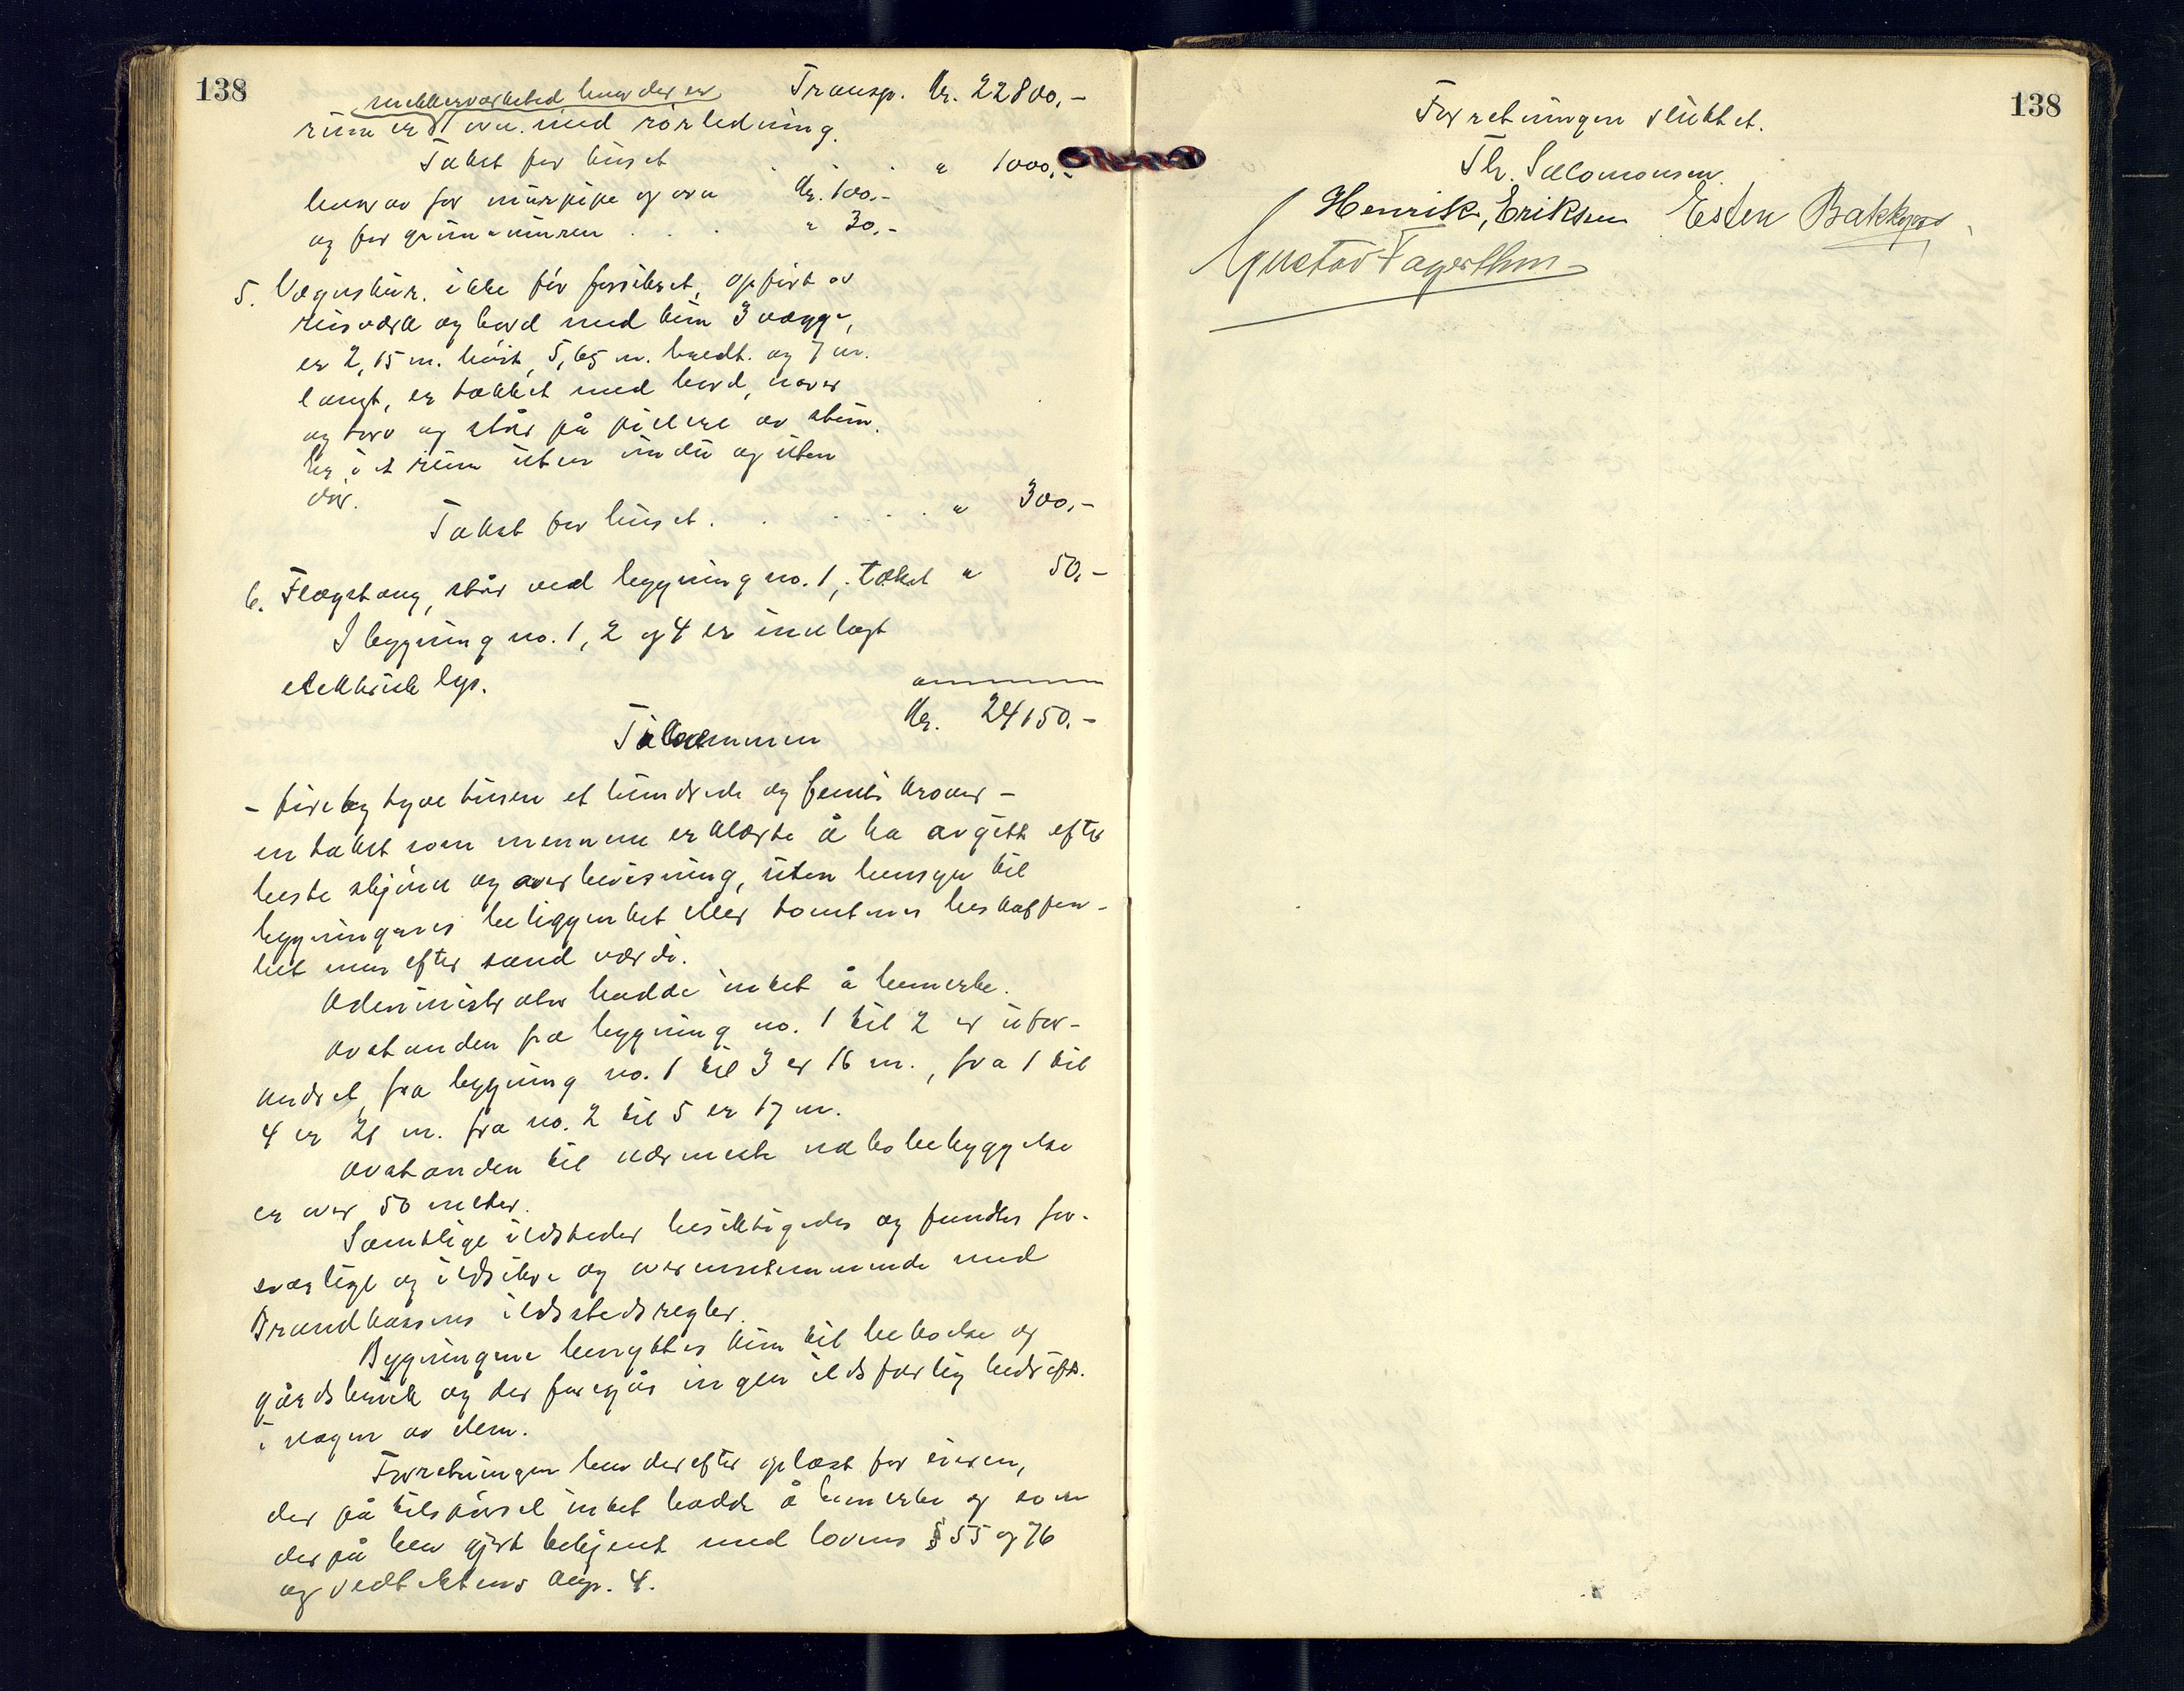 138
snekkerverksted hvor der er
Transp. Kr. 22800,-
rum er 1 ovn med rørledning.
Takst for huset . . . " 1000,-
herav for murpipe og ovn Kr. 100.-
og for grunnmuren . . . " 30.-
5. Vognskur. ikke før forsikret, opført av
reisverk og bord med kun 3 vegge,
er 2,15 m. høit, 5,65 m. bredt. og 7 m.
langt, er tekket med bord, never
og torv og står på pilerer av sten.
Er i et rum uten vindu og uten
dør.
Takst for huset . . . . . " 300,-
6. Flagstang, står ved bygning no. 1, takst " 50,-
I bygning no. 1, 2 og 4 er innlagt
elektrisk lys.
Tilsammen Kr. 24150.-
- fire og tyve tusen et hundrede og femti kroner -
en takst som mennene erklærte å ha avgitt efter
beste skjønn og overbevisning, uten hensyn til
bygningenes beliggenhet eller tomtenes beskaffen-
het men efter sand værdi.
Administrator hadde intet å bemerke.
Avstanden fra bygning no. 1 til 2 er ufor-
andret, fra bygning no. 1 til 3 er 16 m., fra 1 til
4 er 21 m. fra no. 2 til 5 er 17 m.
Avstanden til nærmeste nabobebyggelse
er over 50 meter.
Samtlige ildsteder besiktigedes og fandtes for-
svarlige og ildsikre og overensstemmende med
Brandkassens ildstedsregler.
Bygningene benyttes kun til beboelse og
gårdsbruk og der foregår ingen ildsfarlig bedrift.
i nogen av dem.
Forretningen blev derefter oplæst for eieren,
der på tilspørsel intet hadde å bemerke og som
derpå blev gjort bekjent med lovens § 55 og 76
og vedtektens kap. 4.
138
Forretningen sluttet.
Th. Salomonsen.
Henrik, Eriksen Esten Bakkejord
Gustav Fagerthun